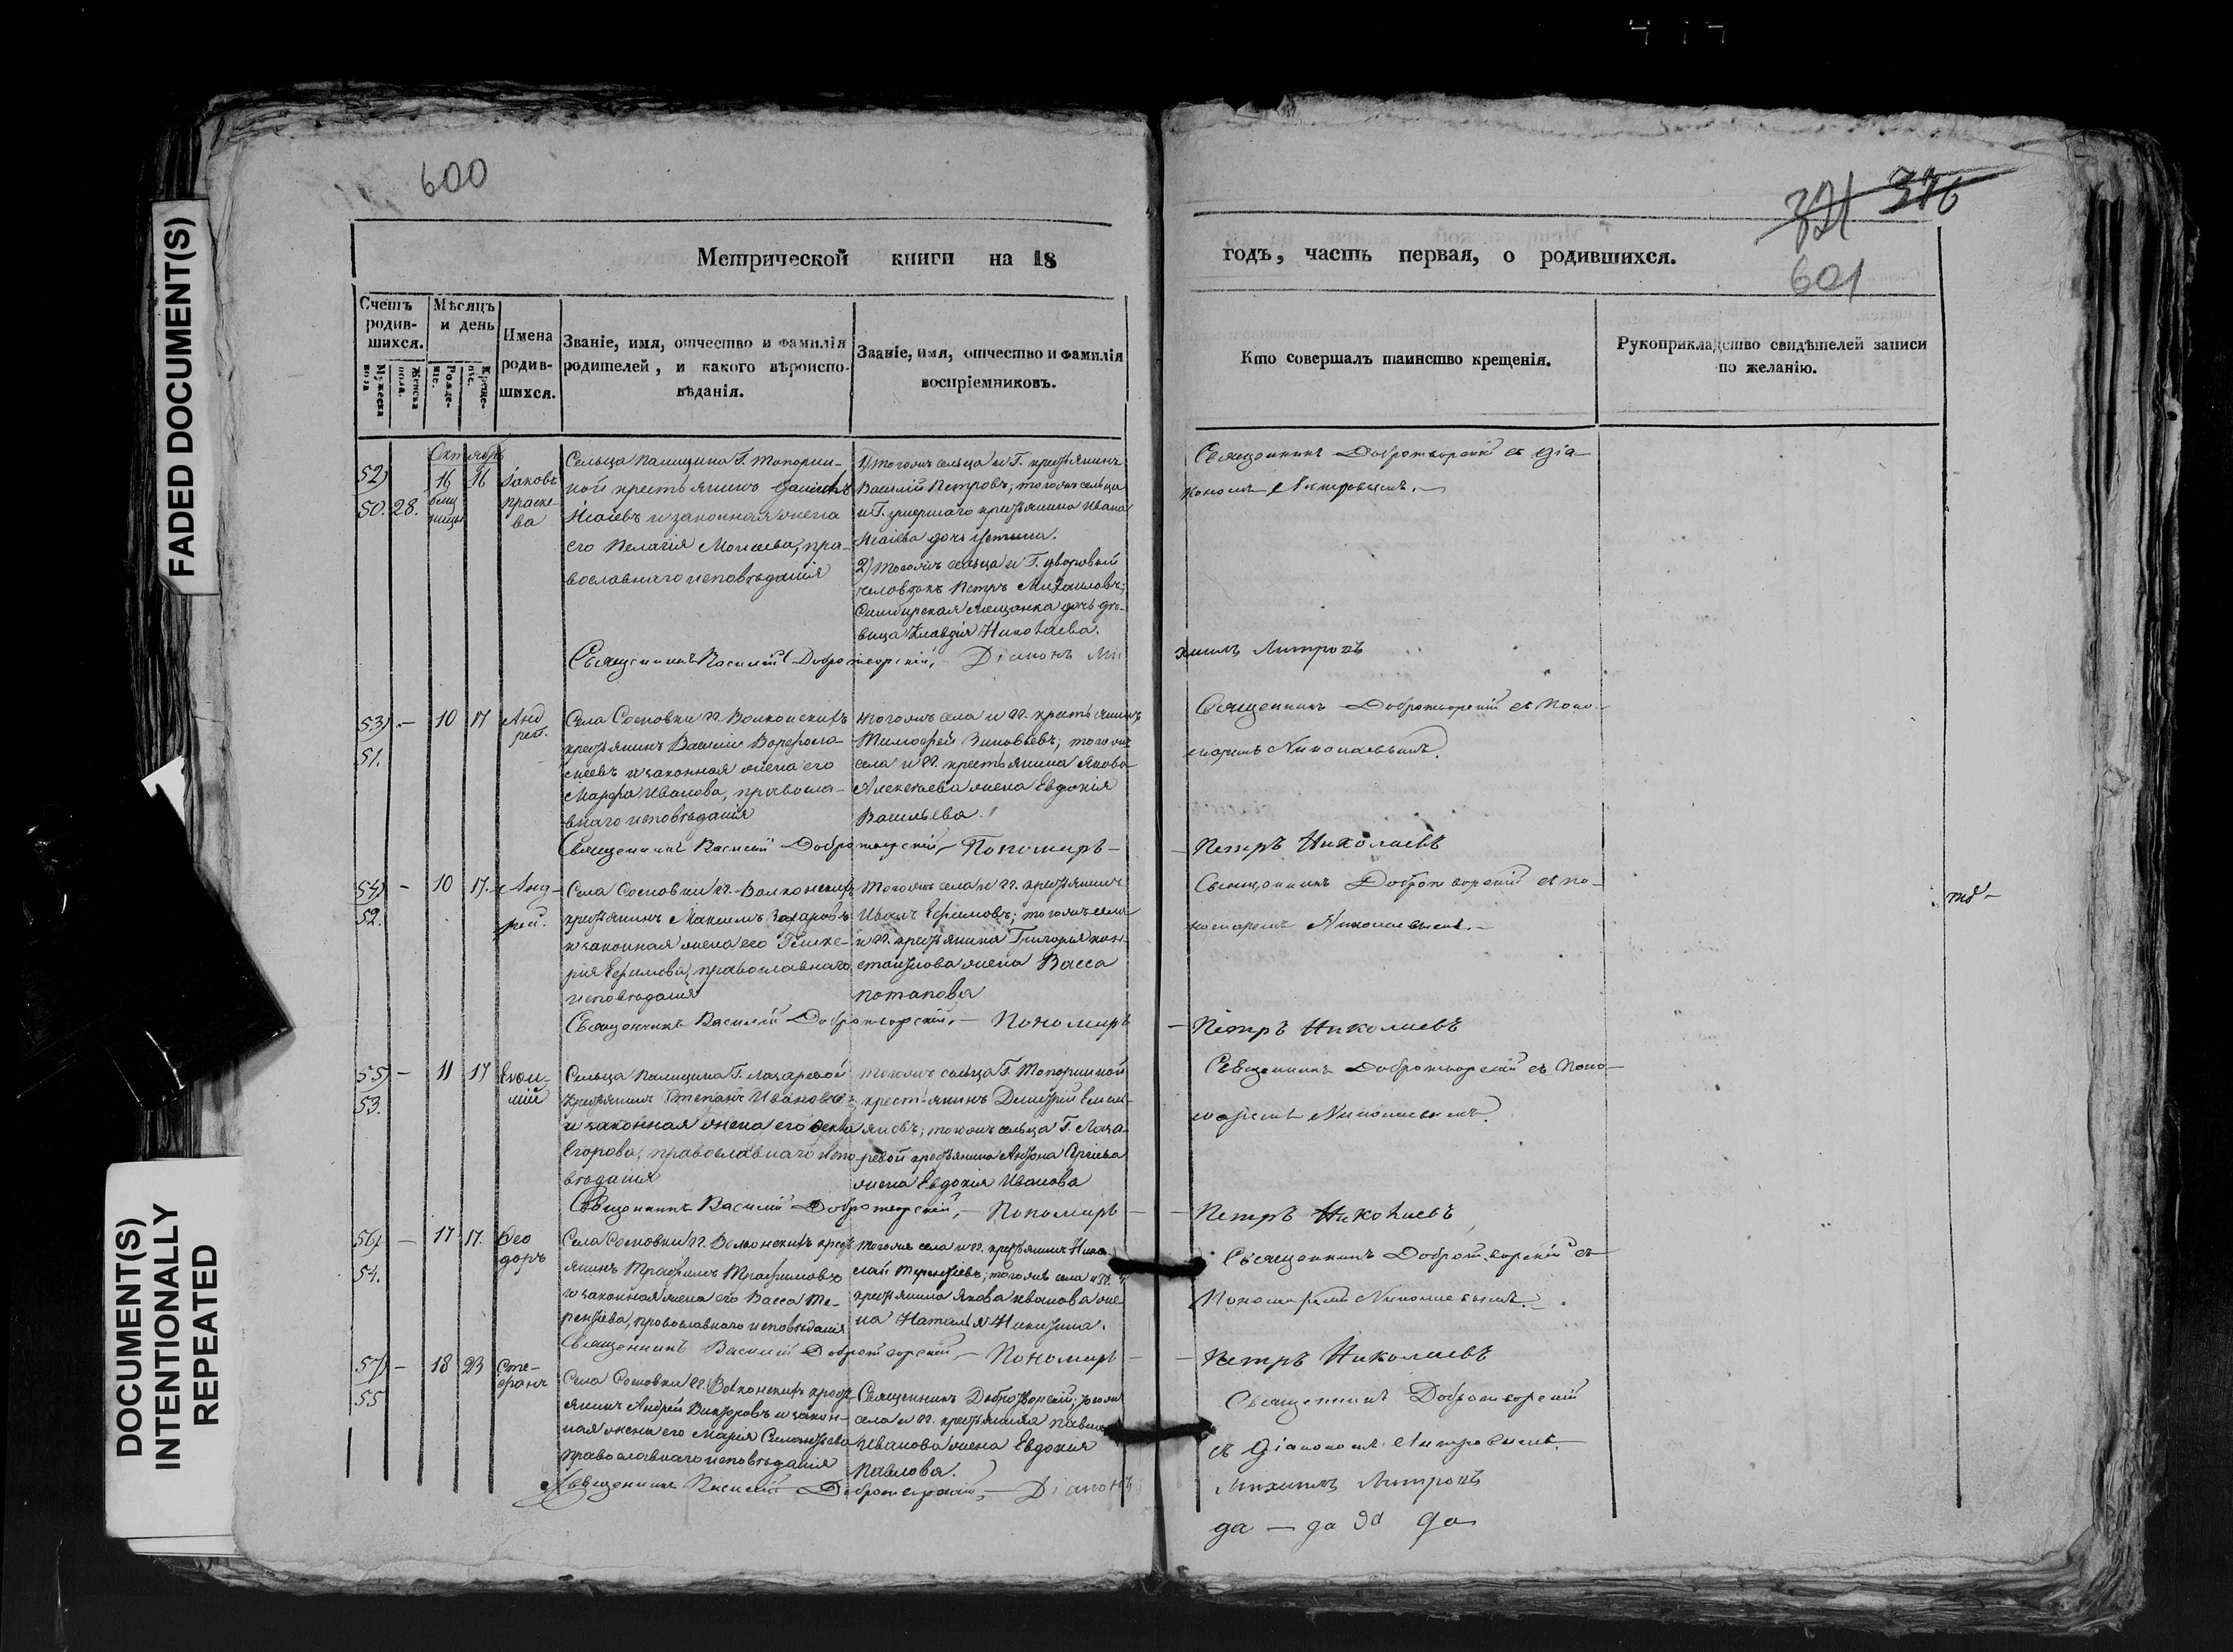 FADED DOCUMENT(S)
DOCUMENT(S)
INTENTIONALLY
REPEATED
600
Метрической книги на 18
Счетъ родив- шихся.
Мужеска пола
Женска пола.
Мѣсяцъ и день
Рожде- нія.
Креще- нія.
Имена родив- шихся.
Званіе, имя, отчество и фамилія
родителей, и какого вѣроиспо-
вѣданія.
Званіе, имя, отчество и фамилія
воспріемниковъ.
Октябрь
52)
50. 28.
16 16
близ
ницы
Іаковъ
Праске-
ва
Сельца Палицина Г. Топорни-
ной крестьянинъ
Исаевъ и законная жена
его Пелагія Моисеева, пра-
вославнаго исповѣданія
1) Тогожъ сельца и Г. крестьянинъ
Василій Петровъ; тогожъ сельца
и Г. умершаго крестьянина Ивана
Исаіева дочь Устинья.
2) Тогожъ сельца и Г. дворовый
человѣкъ Петръ Михаиловъ;
Симбирская мещанка дочь дѣ-
вица Клавдія Николаева.
Священникъ Василій Доброτворскій, — Діаконъ Ми
53) — 10 17
51.
Анд
рей.
Села Сосновки гг. Волконскихъ
крестьянинъ Василій
и законная жена его
Марфа Иванова, правосла-
внаго исповѣданія
Тогожъ села и гг. крестьянинъ
Тимофей Зиновьевъ; тогожъ
села и гг. крестьянина Якова
Алексѣева жена Евдокія
Васильева.
Священникъ Василій Добротворскій, Пономарь —
54) — 10 17.
52.
Анд-
рей.
Села Сосновки гг. Волконскихъ
крестьянинъ Максимъ Захаровъ
и законная жена его Глике-
рия Ефимова, православнаго
исповѣданія
Тогожъ села и гг. крестьянинъ
Иванъ Ефимовъ; тогожъ села
и гг. крестьянина Григорія Кон-
стантинова жена Васса
Потапова
Священникъ Василій Добротворскій, — Пономарь
55) — 11 17
53.
Сельца Палицина Г. Лазаревой
крестьянинъ Степанъ Ивановъ
и законная жена его Фекла
Егорова, православнаго испо
вѣданія
Тогожъ сельца Г. Топорниной
крестьянинъ Димитрій Емель-
яновъ; тогожъ сельца Г. Лаза-
ревой крестьянина Антона Сергіева
жена Евдокія Иванова
Священникъ Василій Добротворскій, — Пономарь —
56) — 17 17.
54.
Ѳео
доръ
Села Сосновки гг. Волконскихъ крест
янинъ Трафимъ Трафимовъ
и законная жена его Васса Те-
рентіева, православнаго исповѣданія
Тогожъ села и гг. крестьянинъ Нико-
лай Терентіевъ; тогожъ села и гг.
крестьянина Якова Иванова же
на Наталья Никитина.
Священникъ Василій Добротворскій, — Пономарь —
57) — 18 23
55
Сте-
фанъ
Села Сосновки гг. Волконскихъ крест
янинъ Андрей Викторовъ и закон-
ная жена его Марія Силантіева
православнаго исповѣданія
Священникъ Добротворскій; тогожъ
села и гг. крестьянина Павла
Иванова жена Евдокия
Павлова.
Священникъ Василій Добротворскій, — Діаконъ
321 376
601
годъ, часть первая, о родившихся.
Кто совершалъ таинство крещенія.
Рукоприкладство свидѣтелей записи
по желанію.
Священникъ Добротворскій съ діа-
кономъ Митровымъ. —
хаилъ Митровъ
Священникъ Добротворскій съ Поно-
маремъ Николаевымъ.
— Петръ Николаевъ
Священникъ Добротворскій съ По-
номаремъ Николаевымъ. —
— Петръ Николаевъ
Священникъ Добротворскій съ Поно-
маремъ Николаевымъ.
— Петръ Николаевъ
Священникъ Добротворскій съ
Пономаремъ Николаевымъ.
— Петръ Николаевъ
Священникъ Добротворскій
съ Діакономъ Митровымъ.
Михаилъ Митровъ
да — да да да